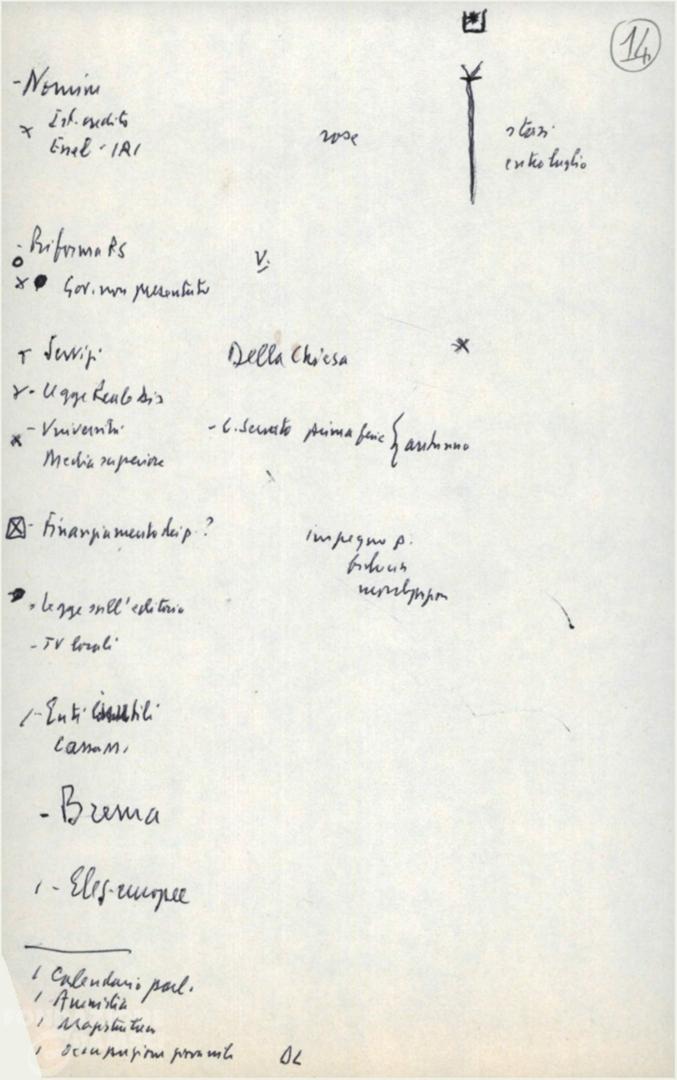 14
- Nomine
x Ist. credito
Enel - IRI
rose
stasi
entro luglio
- Riforma PS
V.
x Gov. non presentato
Servizi
Della Chiesa
x
- Legge Reale bis
x - Università
Media superiore
- C. Senato prima fine { autunno
- Finanziamento dei p. ?
impegno p.
- Legge sull'editoria
- TV locali
- Enti inutili
Cassa
- Brema
- Elez. europee
Calendario parl.
Amnistia
Magistratura
Occupazione giovanile
DL